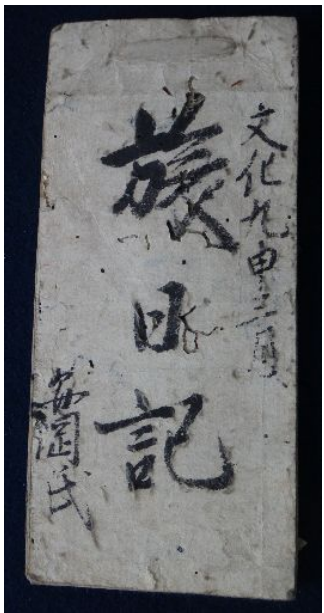 文化九申三月
旅日記
安岡氏